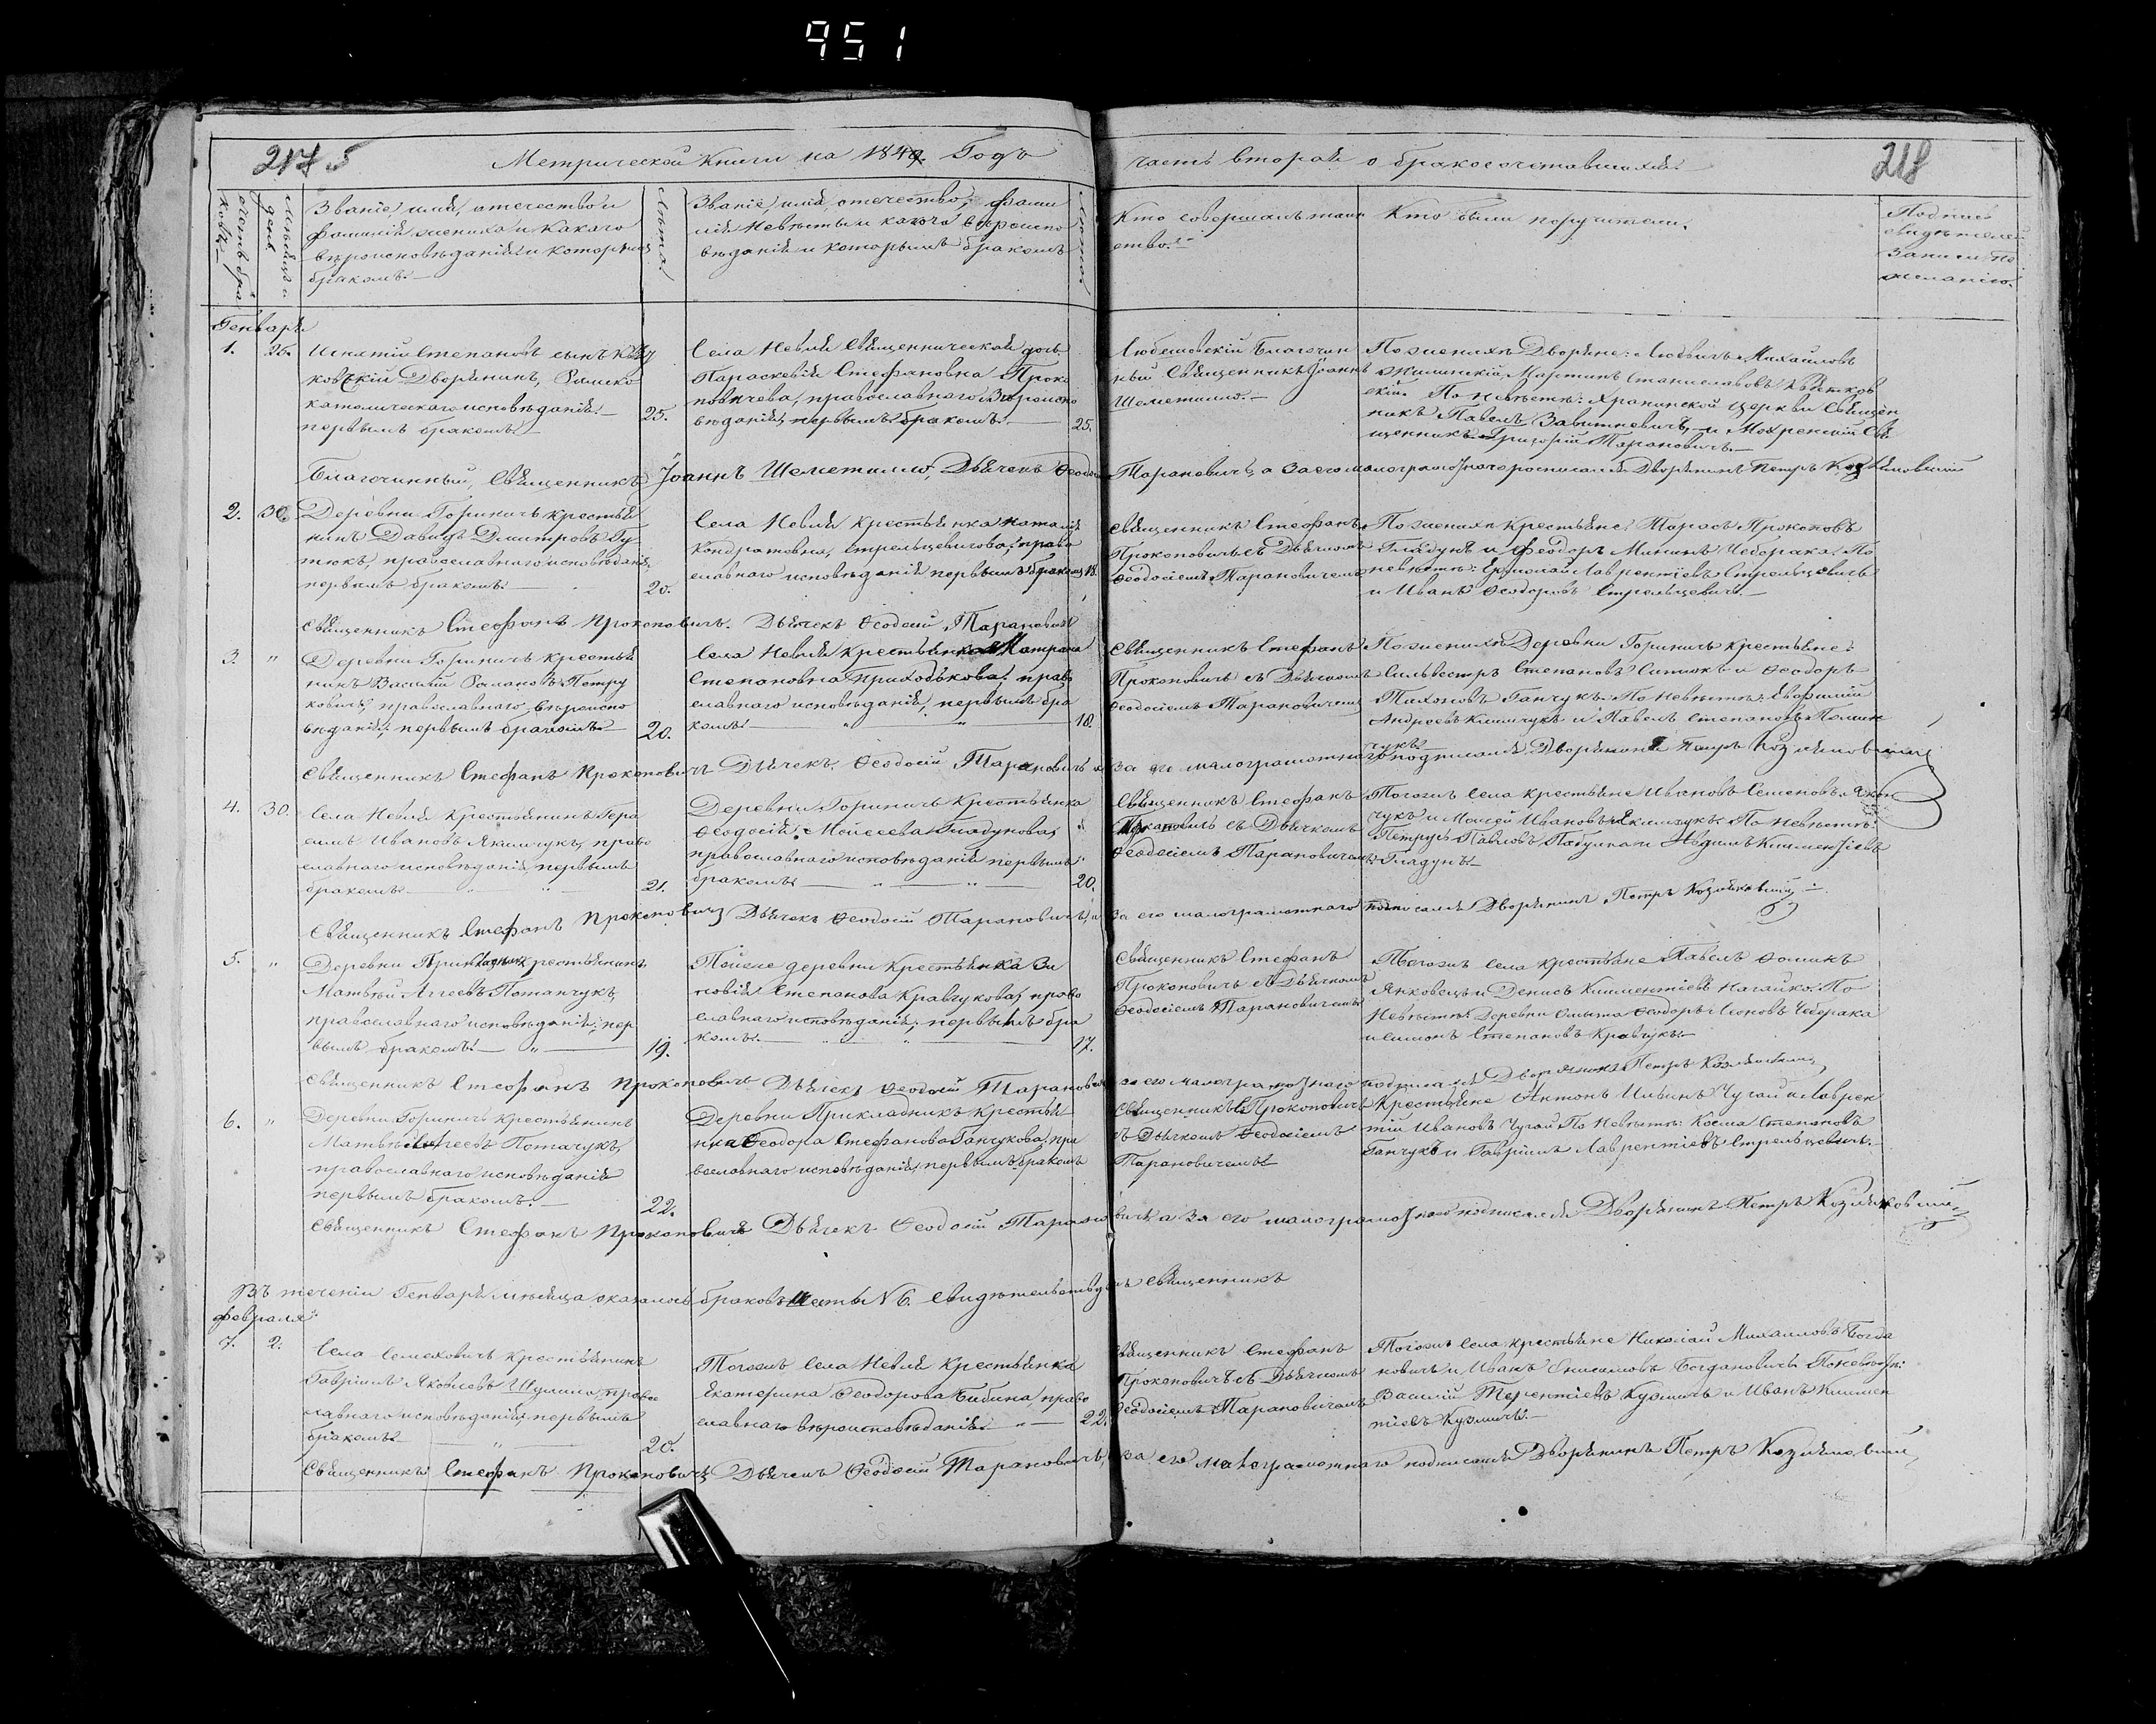 951
217 5
Метрической Книги на 1849. Годъ
часть вторая о бракосочетавшихся.
218
Счетъ бра
ковъ.
Мѣсяцъ и
день
Званіе, имя, отечество и
фамилія жениха и какого
вѣроисповѣданія и которымъ
бракомъ.
Лѣта
Званіе, имя, отечество, фами
лія невѣсты и какого вѣроиспо
вѣданія и которымъ бракомъ
Лѣта
Кто совершалъ таин
ство.
Кто были поручители.
Подпись
свидѣтелей
записи по
желанію.
Генварь
1.
26.
Игнатій Степановъ сынъ
Дворянинъ, Римско
католическаго исповѣданія
первымъ бракомъ.
25.
Села Невля Священническая дочь
Параскевія Стефановна Проко
повичева, православнаго вѣроиспо
вѣданія, первымъ бракомъ.
25.
Любешовскій Благочин
ный Священникъ Іоаннъ
Шеметилло.
По женихѣ Дворяне: Людвигъ Михайловъ
Жилинскій, Мартинъ Станиславовъ
скій. По невѣстѣ: церкви Священ
никъ Павелъ Завитневичъ, и Свя
щенникъ Григорій Тарановичъ.
Благочинный, Священникъ Іоаннъ Шеметилло, Дьячекъ Ѳеодосій Тарановичъ, а за его малограмотнаго росписался Дворянинъ Петръ
2.
30.
Деревни Гориничъ крестья
нинъ Давидъ Дмитровъ Гу
тюкъ, православнаго исповѣданія,
первымъ бракомъ.
20.
Села Невля крестьянка Наталія
Кондратовна, Стрельцевичова, право
славнаго исповѣданія первымъ бракомъ
18.
Священникъ Стефанъ
Прокоповичъ съ Дьячкомъ
Ѳеодосіемъ Тарановичемъ
По женихѣ Крестьяне: Тарасъ Прокоповъ
Гладунъ и Феодоръ Мининъ Чеберака. По
невѣстѣ: Ермолай Лаврентіевъ Стрельцевичъ
и Иванъ Ѳеодоровъ Стрельцевичъ.
Священникъ Стефанъ Прокоповичъ. Дьячекъ Ѳеодосій Тарановичъ
3.
"
Деревни Гориничъ крестья
нинъ Василій Романовъ Петру
ковичъ, православнаго вѣроиспо
вѣданія, первымъ бракомъ
20.
Села Невля крестьянка Матрона
Степановна Приходькова, право
славнаго исповѣданія, первымъ бра
комъ.
18.
Священникъ Стефанъ
Прокоповичъ съ Дьячкомъ
Ѳеодосіемъ Тарановичемъ
По женихѣ Деревни Гориничъ Крестьяне:
Сильвестръ Степановъ и Ѳеодоръ
Тихоновъ Ганчукъ. По невѣстѣ:
Андреевъ Климчукъ и Павелъ Степановъ
чукъ.
Священникъ Стефанъ Прокоповичъ Дьячекъ. Ѳеодосій Тарановичъ а за его малограмотнаго подписался Дворянинъ Петръ
4.
30.
Села Невля Крестьянинъ Гера
симъ Ивановъ Якимчукъ, право
славнаго исповѣданія, первымъ
бракомъ.
21.
Деревни Гориничъ Крестьянка
Ѳеодосія Моисеева Гладунова,
православнаго исповѣданія первымъ
бракомъ.
20.
Священникъ Стефанъ
съ Дьячкомъ
Ѳеодосіемъ Тарановичемъ
Тогожъ села крестьяне Ивановъ Семеновъ
чукъ и Моисей Ивановъ Якимчукъ. По невѣстѣ:
Петрусь Павловъ и Климентіевъ
Гладунъ.
Священникъ Стефанъ Прокоповичъ Дьячекъ Ѳеодосій Тарановичъ, а за его малограмотнаго подписался Дворянинъ Петръ
5.
"
Деревни крестьянинъ
Матвѣй Аггеевъ Потапчукъ,
православнаго исповѣданія, пер
вымъ бракомъ.
19.
Тойже деревни Крестьянка Зи
новія Степанова Кравчукова, право
славнаго исповѣданія, первымъ бра
комъ.
17.
Священникъ Стефанъ
Прокоповичъ съ Дьячкомъ
Ѳеодосіемъ Тарановичемъ
Тогожъ села крестьяне Павелъ Ѳоминъ
Янковецъ и Денисъ Климентіевъ Нагайко. По
невѣстѣ: Деревни Ѳеодоръ Леоновъ Чеберака
и Симонъ Степановъ Кравчукъ.
Священникъ Стефанъ Прокоповичъ Дьячекъ Ѳеодосій Тарановичъ за его малограмотнаго подписался Дворянинъ Петръ
6.
"
Деревни Гориничъ Крестьянинъ
Матвѣй Потапчукъ,
православнаго исповѣданія
первымъ бракомъ.
22.
Деревни Прикладникъ крестья
нка Ѳеодора Стефанова Ганчукова, пра
вославнаго исповѣданія, первымъ бракомъ
Священникъ С. Прокоповичъ
съ Дьячкомъ Ѳеодосіемъ
Тарановичемъ
Крестьяне Антонъ Ильинъ Чугай и Лаврен
тій Ивановъ Чугай По невѣстѣ: Косма Степановъ
Ганчукъ и Гавріилъ Лаврентіевъ Стрельцевичъ.
Священникъ Стефанъ Прокоповичъ Дьячекъ Ѳеодосій Тарановичъ а за его малограмотнаго подписался Дворянинъ Петръ
Въ теченіи Генваря мѣсяца оказалось браковъ шесть N 6. Свидѣтельствуетъ Священникъ
Февраля
7.
2.
Села Семеховичъ Крестьянинъ
Гавріилъ Яковлевъ Шумило, право
славнаго исповѣданія, первымъ
бракомъ
20.
Тогожъ села Невля Крестьянка
Екатерина Ѳеодорова Бибина, право
славнаго вѣроисповѣданія.
22.
Священникъ Стефанъ
Прокоповичъ съ Дьячкомъ
Ѳеодосіемъ Тарановичемъ
Тогожъ села крестьяне Николай Михайловъ Богда
новичъ и Иванъ Онисимовъ Богдановичъ По невѣстѣ:
Василій Терентіевъ Кузмичъ и Иванъ Климен
тіевъ Кузмичъ.
Священникъ Стефанъ Прокоповичъ Дьячекъ Ѳеодосій Тарановичъ, за его малограмотнаго подписался Дворянинъ Петръ